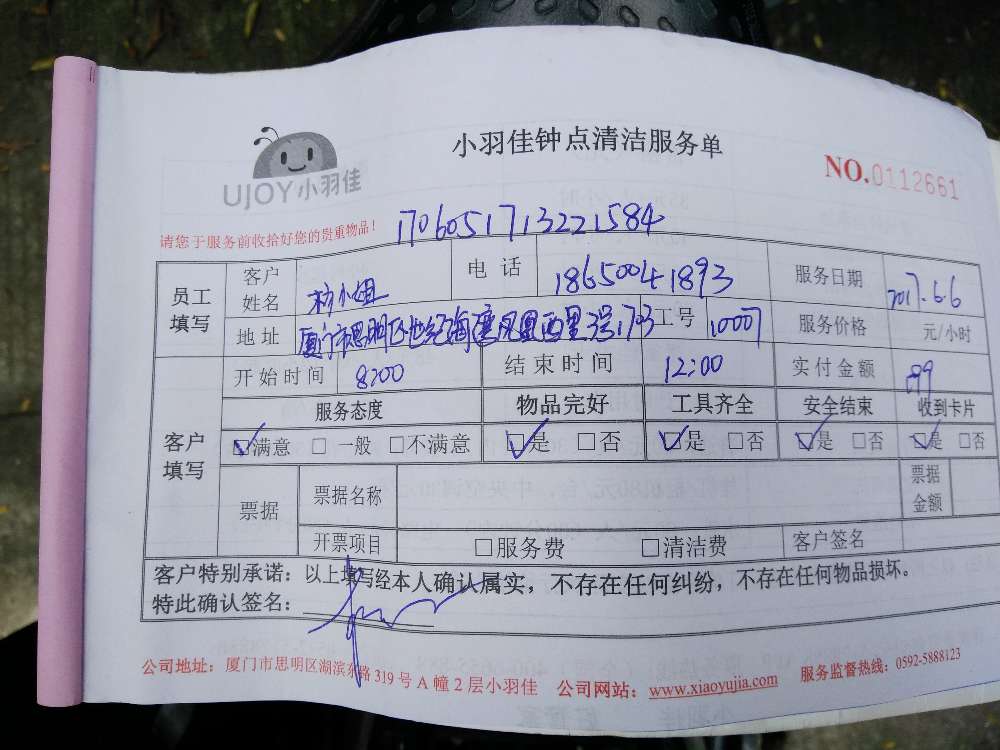 UJOY小羽佳
小羽佳钟点清洁服务单
NO.0112661
请您于服务前收拾好您的贵重物品！
1706051713221584
员工填写 客户姓名 小姐 电话 18650041893 服务日期 2017.6.6
地址 厦门市思明区世纪海 西里 1703 工号 10007 服务价格 元/小时
客户填写 开始时间 8:00 结束时间 12:00 实付金额 99
服务态度 物品完好 工具齐全 安全结束 收到卡片
☑满意 □一般 □不满意 ☑是 □否 ☑是 □否 ☑是 □否 ☑是 □否
票据 票据名称 票据金额
开票项目 □服务费 □清洁费 客户签名
客户特别承诺：以上填写经本人确认属实，不存在任何纠纷，不存在任何物品损坏。
特此确认签名：
公司地址：厦门市思明区湖滨东路319号A幢2层小羽佳 公司网站：www.xiaoyujia.com 服务监督热线：0592-5888123